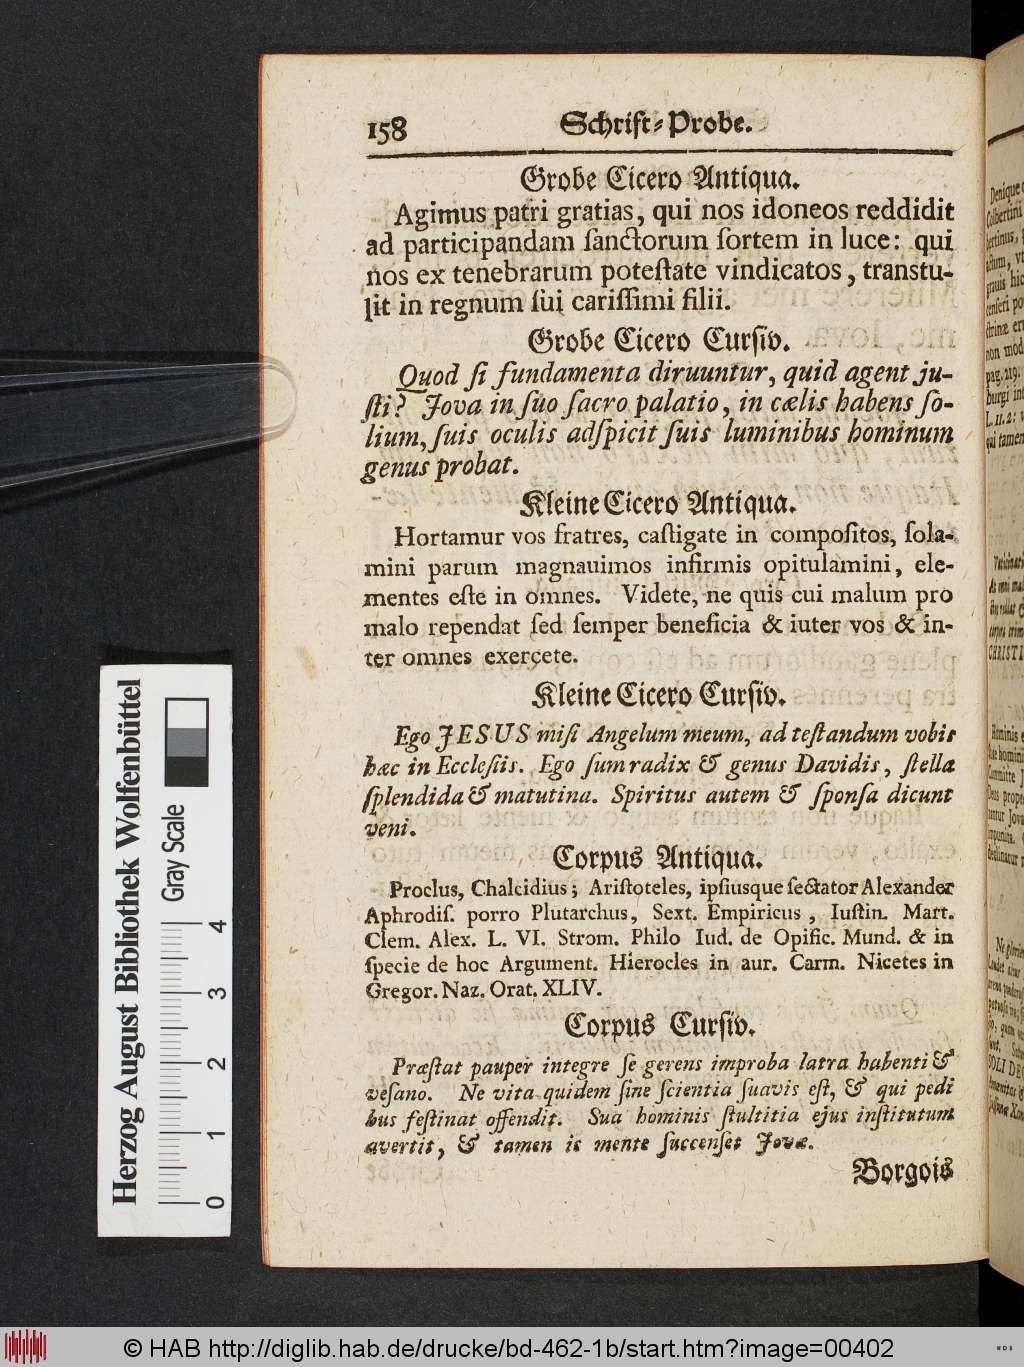 158 Schrift-Probe.
Grobe Cicero Antiqua.
Agimus patri gratias, qui nos idoneos reddidit
ad participandam ſanctorum ſortem in luce: qui
nos ex tenebrarum poteſtate vindicatos, transtu-
lit in regnum ſui cariſſimi filii.
Grobe Cicero Curſiv.
Quod ſi fundamenta diruuntur, quid agent ju-
ſti? Jova in ſuo ſacro palatio, in cælis habens ſo-
lium, ſuis oculis adſpicit ſuis luminibus hominum
genus probat.
Kleine Cicero Antiqua.
Hortamur vos fratres, caſtigate in compoſitos, ſola-
mini parum magnauimos infirmis opitulamini, ele-
mentes eſte in omnes. Videte, ne quis cui malum pro
malo rependat ſed ſemper beneficia & iuter vos & in-
ter omnes exercete.
Kleine Cicero Curſiv.
Ego JESUS miſi Angelum meum, ad teſtandum vobis
hæc in Eccleſiis. Ego ſum radix & genus Davidis, ſtella
ſplendida & matutina. Spiritus autem & ſponſa dicunt
veni.
Corpus Antiqua.
Proclus, Chalcidius; Ariſtoteles, ipſiusque ſectator Alexander
Aphrodiſ. porro Plutarchus, Sext. Empiricus, Iuſtin. Mart.
Clem. Alex. L. VI. Strom. Philo Iud. de Opific. Mund. & in
ſpecie de hoc Argument. Hierocles in aur. Carm. Nicetes in
Gregor. Naz. Orat. XLIV.
Corpus Curſiv.
Præſtat pauper integre ſe gerens improba latra habenti &
veſano. Ne vita quidem ſine ſcientia ſuavis eſt, & qui pedi
bus feſtinat offendit. Sua hominis ſtultitia ejus inſtitutum
avertit, & tamen is mente ſuccenſet Jovæ.
Borgois
Herzog August Bibliothek Wolfenbüttel
Gray Scale
0 1 2 3 4
Denique
Colbertini
pag. 219.
L. 11. 2:
qui tamen
CHRISTI
© HAB http://diglib.hab.de/drucke/bd-462-1b/start.htm?image=00402